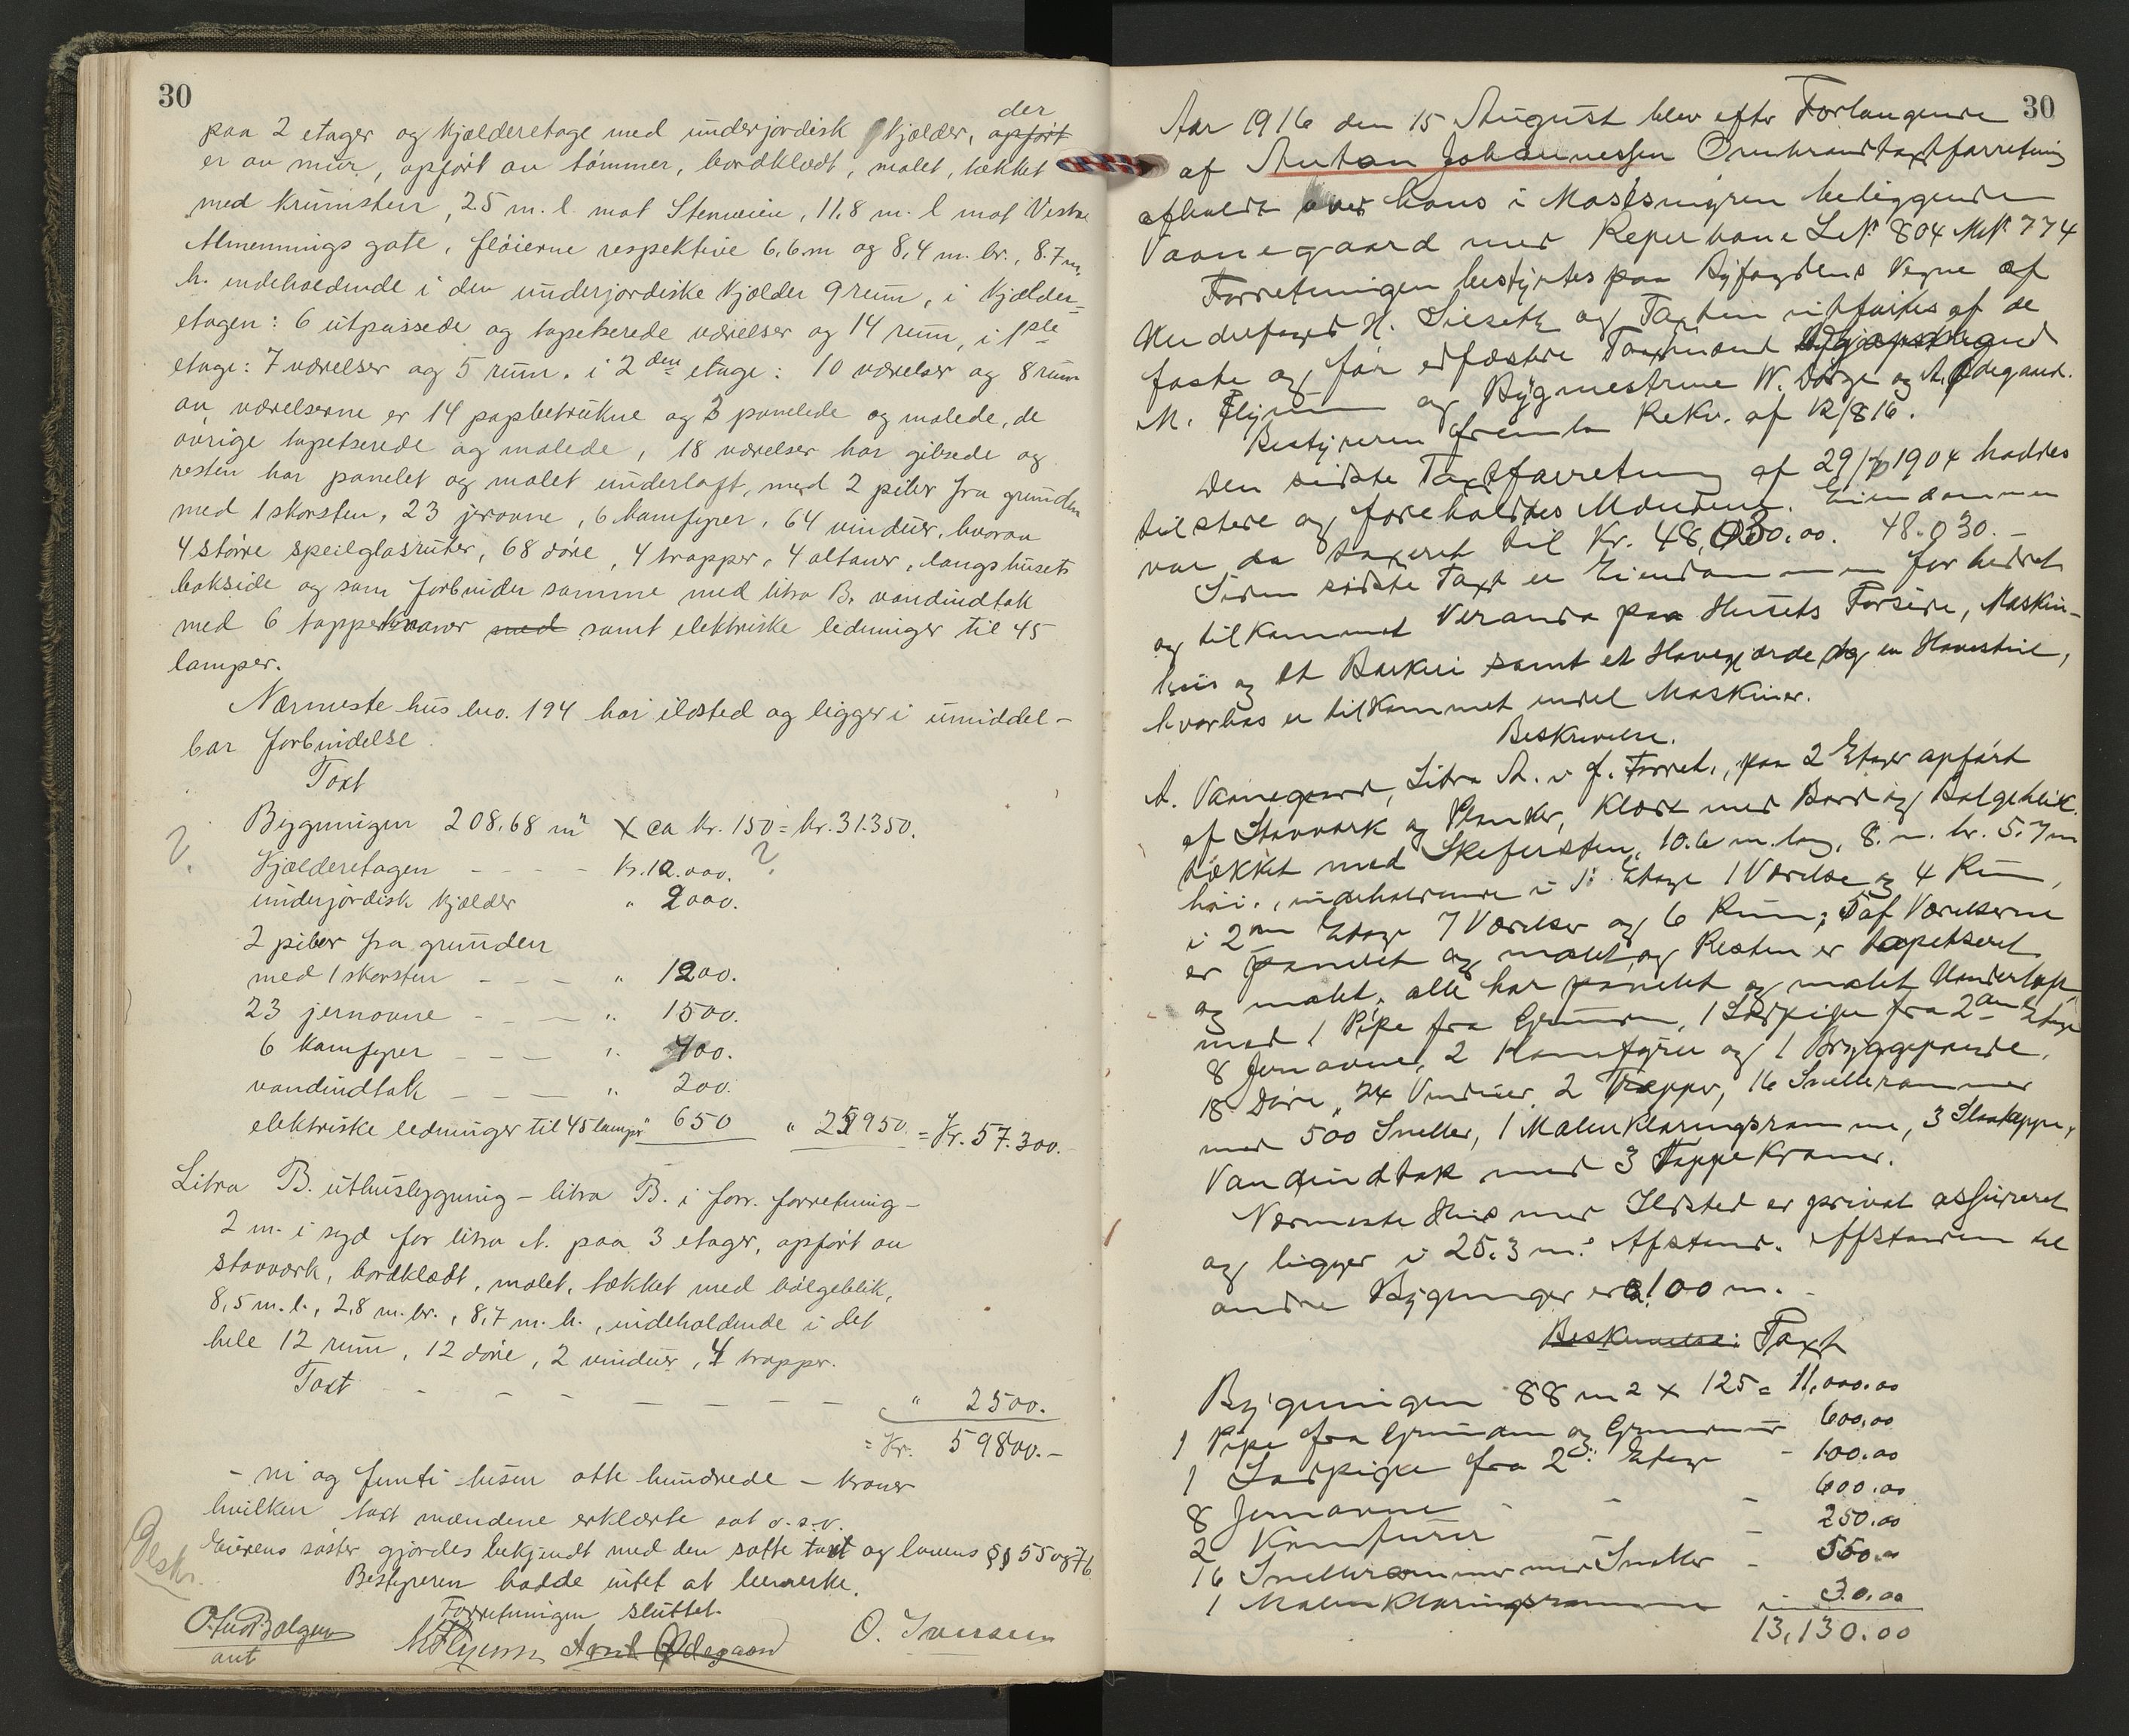 30
paa 2 etager og kjælderetage med underjordisk kjelder, opført der
er av mur, opført av tømmer, bordklædt, malet, tækket
med krumsten, 25 m. l. mot Stenveien, 11,8 m. l mot Vestre
Almennings gate, fløierne respektive 6,6 m og 8,4 m. br., 8.7 m.
h. indeholdende i den underjordiske kjælder 9 rum, i kjælder=
etagen: 6 utpussede og tapetserede værelser og 14 rum, i 1ste
etage: 7 værelser og 5 rum. i 2den etage: 10 værelser og 8 rum
av værelserne er 14 papbetrukne og 3 panelede og malede, de
øvrige tapetserede og malede, 18 værelser har gibsede og
resten har panelet og malet underloft, med 2 piber fra grunden
med 1 skorsten, 23 jernovne, 6 kamfyrer, 64 vinduer, hvorav
4 større speilglasruter, 68 døre, 4 trapper, 4 altaner, langs husets
bakside og som forbinder samme med litra B. vandindtak
med 6 tappekraner med samt elektriske ledninger til 45
lamper.
Nærmeste hus bno. 194 har ildsted og ligger i umiddel-
bar forbindelse
Taxt
Bygningen 208,68 m² x ca kr. 150 = kr. 31.350.
Kjælderetagen - - - - kr. 12.000. ?
underjordisk kjelder " 2000.
2 piber fra grunden
med 1 skorsten - - - " 1200.
23 jernovne - - - " 1500.
6 kamfyrer - - - " 400.
vandindtak - - - " 200.
elektriske ledninger til 45 lamper " 650 " 25950. = Kr. 57.300.
Litra B. uthusbygning - litra B. i forr. forretning -
2 m. i syd for litra A. paa 3 etager, opført av
stavverk, bordklædt, malet, tækket med bølgeblik,
8,5 m. l., 2,8 m. br., 8,7 m. h., indeholdende i det
hele 12 rum, 12 døre, 2 vinduer, 4 trapper.
Taxt - - - - - - - " 2500.
= Kr. 59800.-
- ni og femti tusen otte hundrede - kroner
hvilken taxt mændene erklærte sat o. s. v.
Eierens søster gjordes bekjendt med den satte taxt og lovens §§ 55 og 76
Bestyreren hadde intet at bemerke.
Forretningen sluttet.
M Flyum Arnt Ødegaard O. Iversen
aut
30
Aar 1916 den 15 August blev efter Forlangende
af Anton Johannessen Ombrandtaxtforretning
afholdt over hans i Mosesmyren beliggende
Vaanegaard med Reperbane L.№ 804 M№ 774
Forretningen bestyrtes paa Byfogdens Vegne af
H. Sieseth og Taxten utførtes af de
faste og før edfæstede Taxtmænd
M. Flyum og Bygmestrene W. Dorge og A. Ødegaard.
Bestyreren fremla Rekv. af 12/8 16.
Den sidste Taxtforretning af 29/7 1904 haddes
tilstede og foreholdtes Mændene. Eiendommen
var da taxeret til Kr. 48,030.00. 48.030.-
Siden sidste Taxt er Eiendommen forbedret
og tilkommet Veranda paa Husets Forside, Maskin-
hus og et Barkeri samt et Havegjærde og en Havestue,
hvorhos er tilkommet endel Maskiner.
Beskrivelse.
A. Vaanegaard, Litra A. i f. Forret., paa 2 Etager opført
af Stavværk og Planker, klædt med Bord og Bølgeblik,
tækket med Skifersten, 10.6 m. lang, 8. m. br. 5.7 m
høi., indeholdende i 1ste Etage 1 Værelse og 4 Rum,
i 2den Etage 7 Værelser og 6 Rum; 5 af Værelserne
er panelet og malet, og Resten er tapetseret
og malet, alle har panelet og malet Underloft,
med 1 Pipe fra Grunden, 1 fra 2den Etage
8 Jernovne, 2 Komfyrer og 1 Bryggepande,
18 Døre, 24 Vinduer, 2 Trapper, 16 Snellerammer
med 500 Sneller, 1 rammer, 3
Vandindtak med 3 Tappekraner.
Nærmeste Hus med Ildsted er privat assureret
og ligger i 25.3 m.s Afstand. Afstanden til
andre Bygninger er 100 m.
Beskrivelse: Taxt
Bygningen 88 m2 x 125 = 11,000.00
1 Pipe fra Grunden og Grundmur 600.00
1 fra 2den Etage - 100.00
8 Jernovne - - - 600.00
2 Komfurer - 250.00
16 Snellerammer med Sneller - 550.-
1 - 30.00
13,130.00